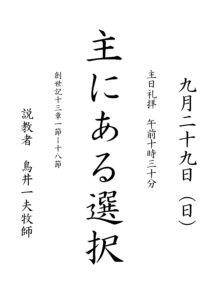 九月二十九日（日）
主日礼拝　午前十時三十分
主にある選択
創世記十三章一節－十八節
説教者　鳥井一夫牧師